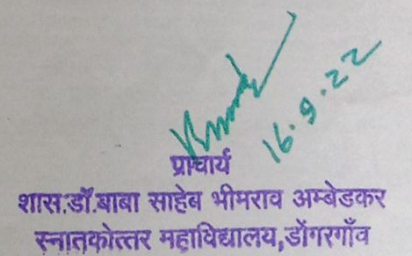 16.9.22
प्राचार्य
शास.डॉ.बाबा साहेब भीमराव अम्बेडकर
स्नातकोत्तर महाविद्यालय,डोंगरगाँव